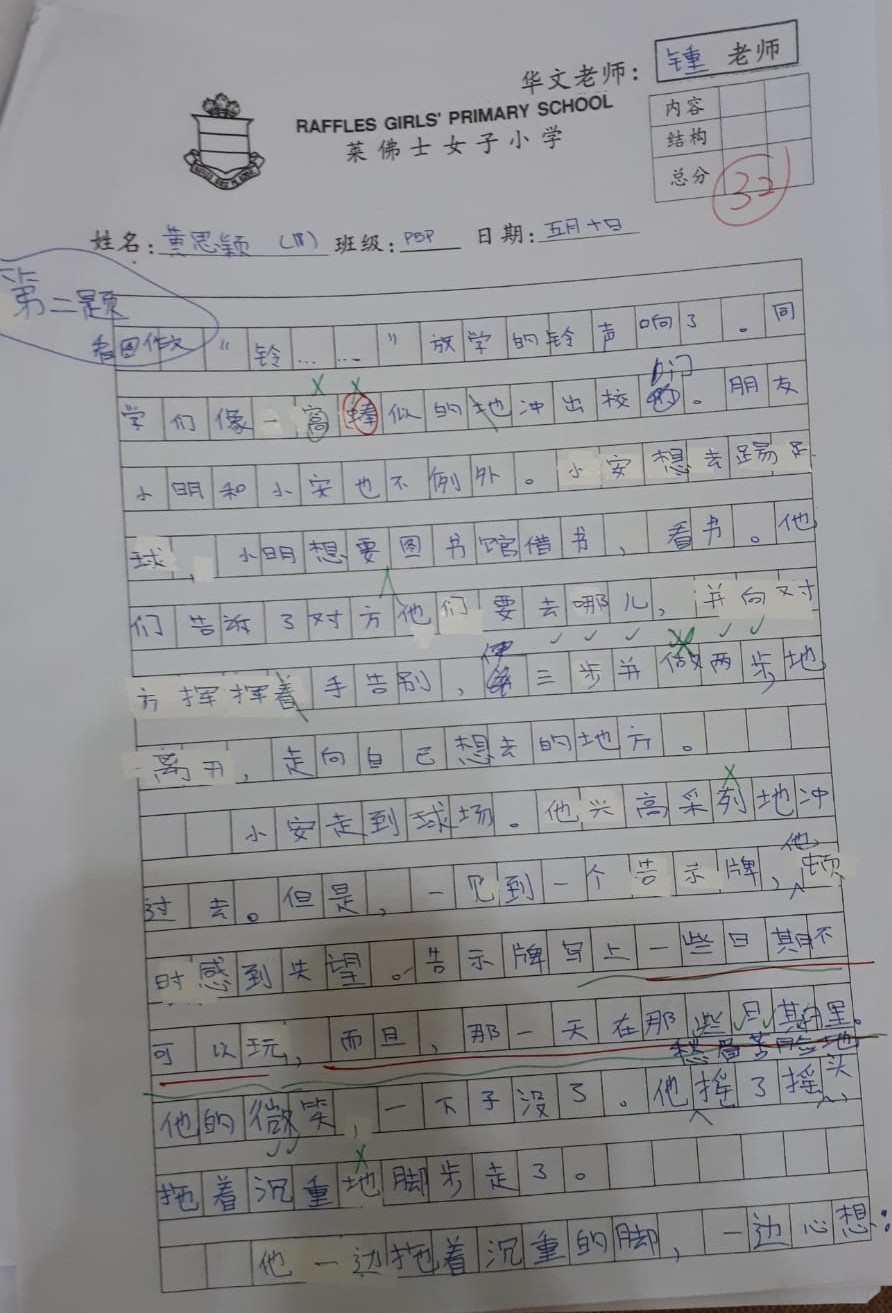 华文老师：锺 老师
RAFFLES GIRLS' PRIMARY SCHOOL
莱佛士女子小学
内容
结构
总分 32
姓名：黄思颖 (18) 班级：P5P 日期：五月十日
第二题
看图作文 “铃……”放学的铃声响了。同
学们像一窝蜂似的地冲出校门。朋友
小明和小安也不例外。小安想去踢足
球，小明想要图书馆借书、看书。他
们告诉了对方他们要去哪儿，并向对
方挥挥着手告别，便三步并做两步地
离开，走向自己想去的地方。
小安走到球场。他兴高采列地冲
过去。但是，一见到一个告示牌，他顿
时感到失望。告示牌写上一些日期不
可以玩，而且，那一天在那些日期里。
愁眉苦脸地
他的微笑，一下子没了。他摇了摇头，
拖着沉重地脚步走了。
他一边拖着沉重的脚，一边心想：